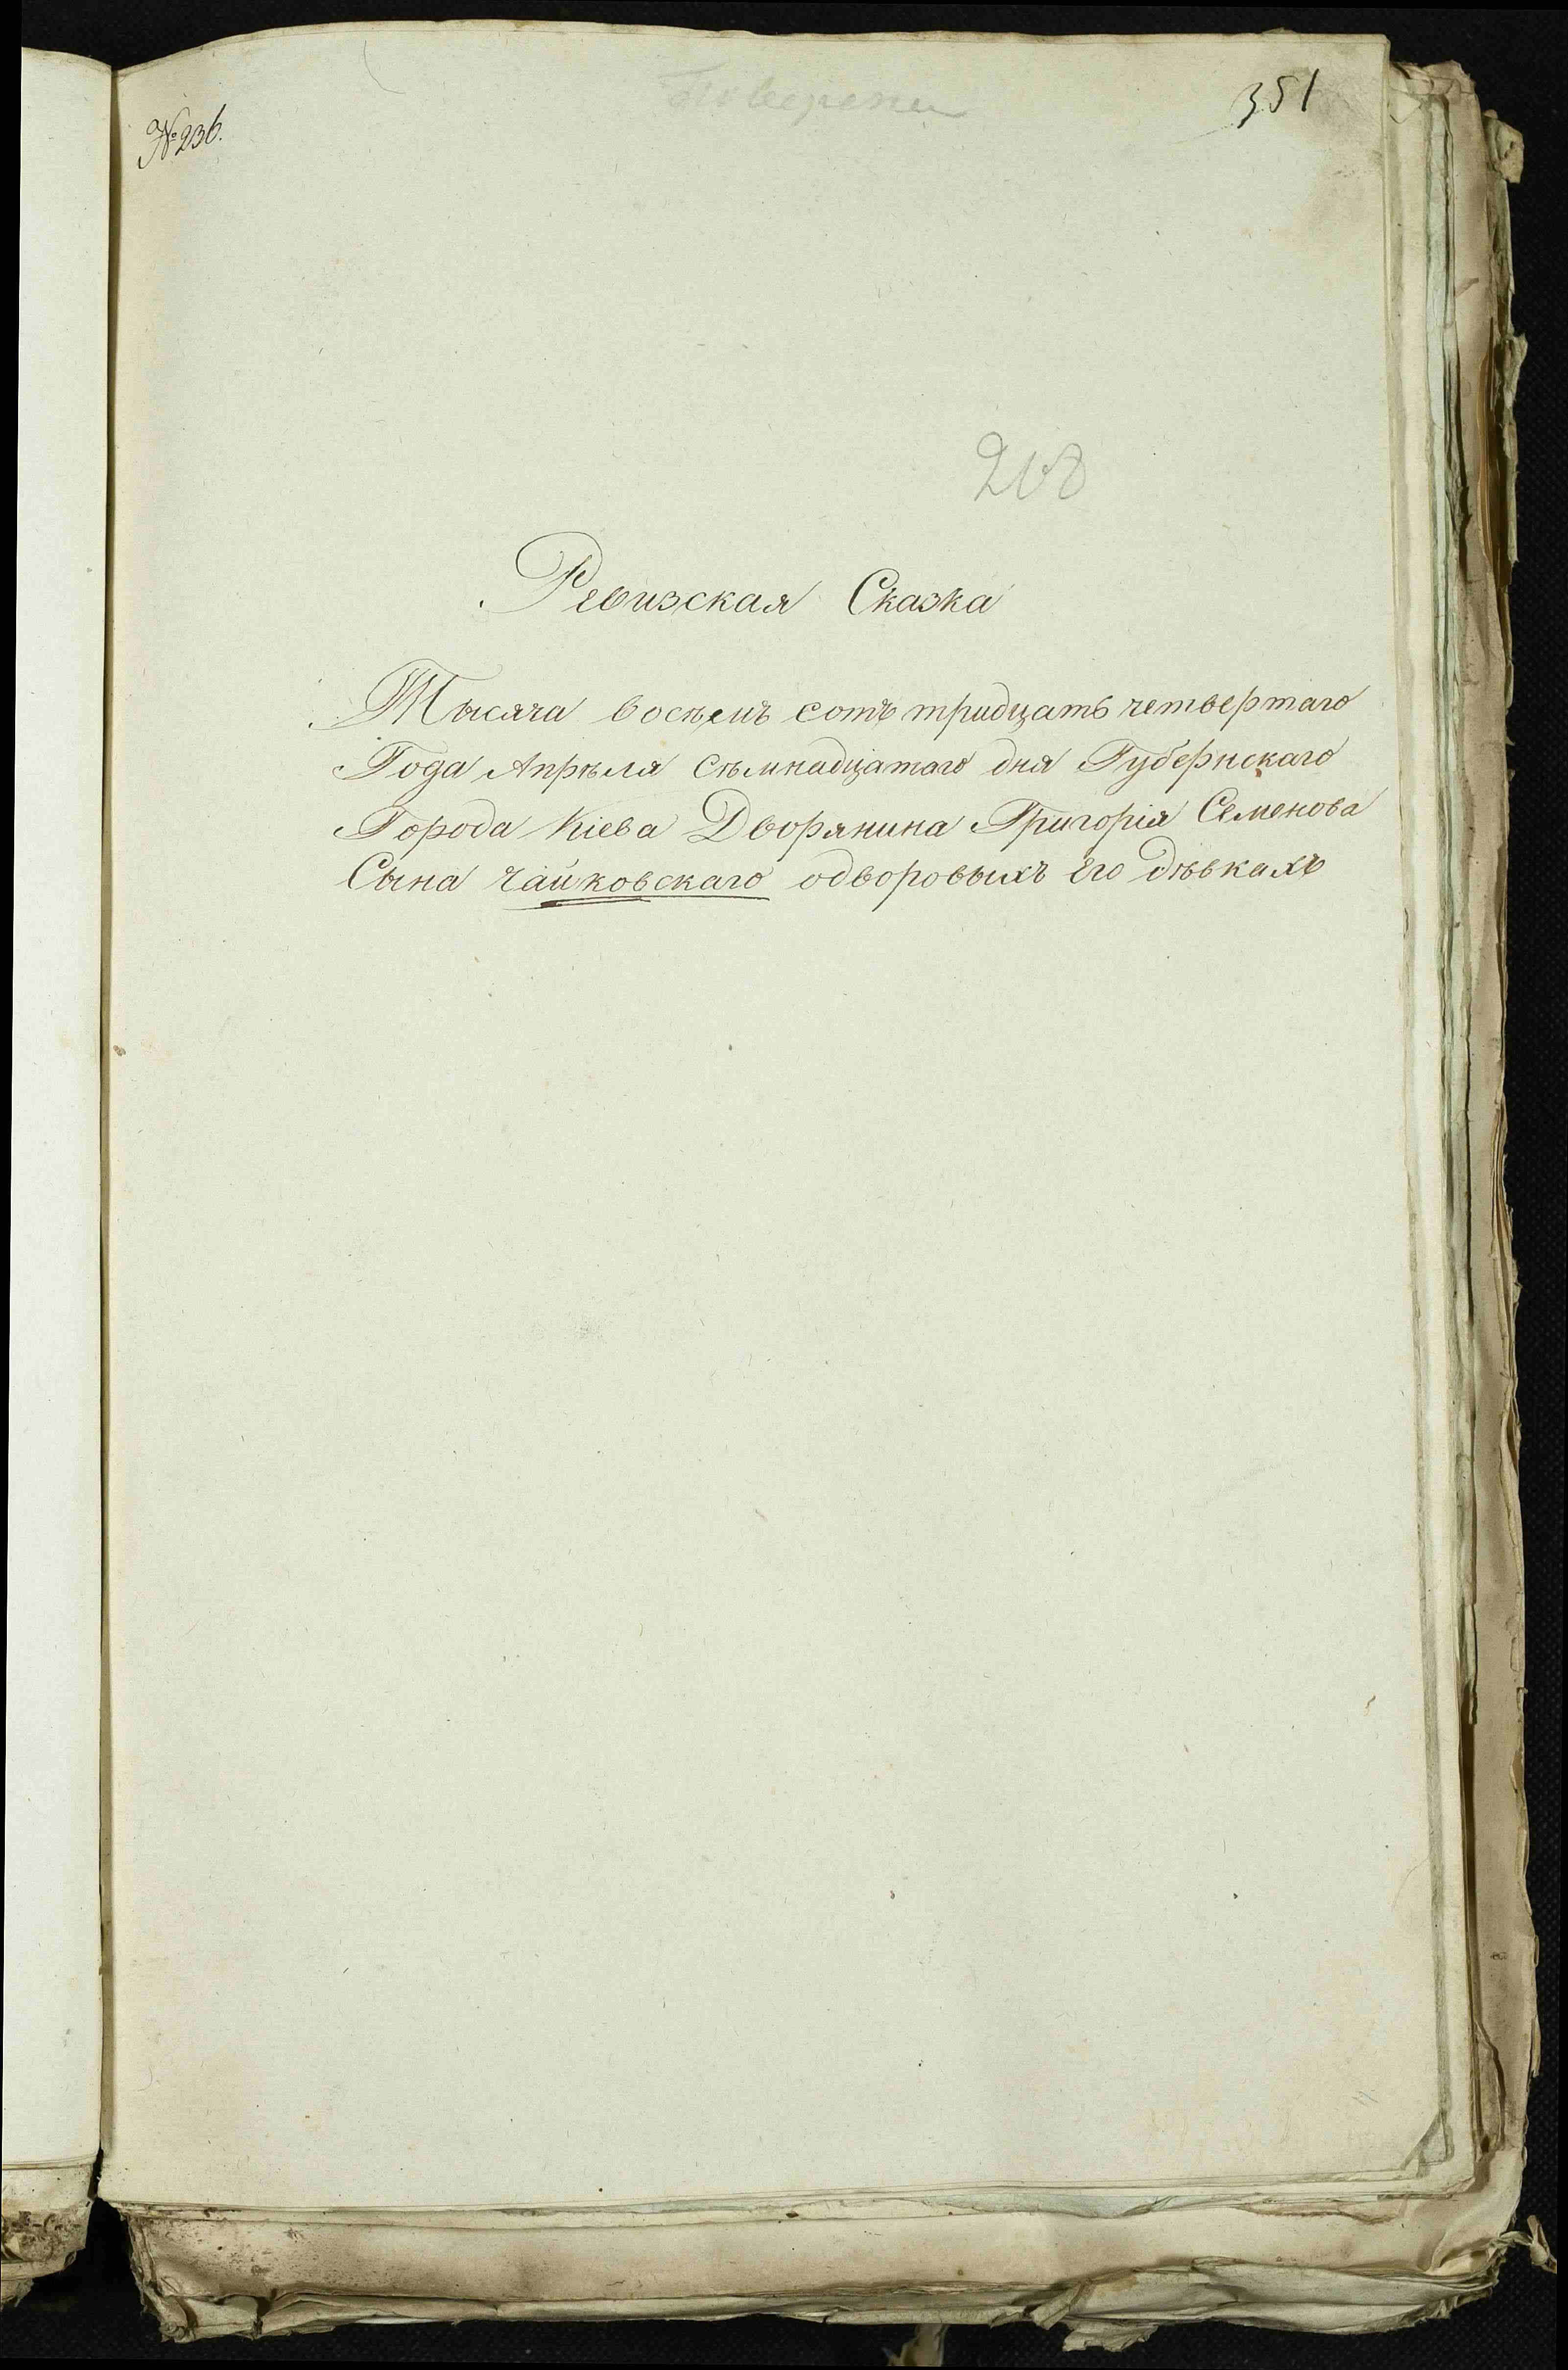 № 236.
351
208
Ревизская Сказка
Тысяча восѣмъ сотъ тридцать четвертаго
Года Апрѣля сѣмнадцатаго дня Губернскаго
Города Кіева Дворянина Григорія Семенова
Сына Чайковскаго одворовыхъ Его дѣвкахъ